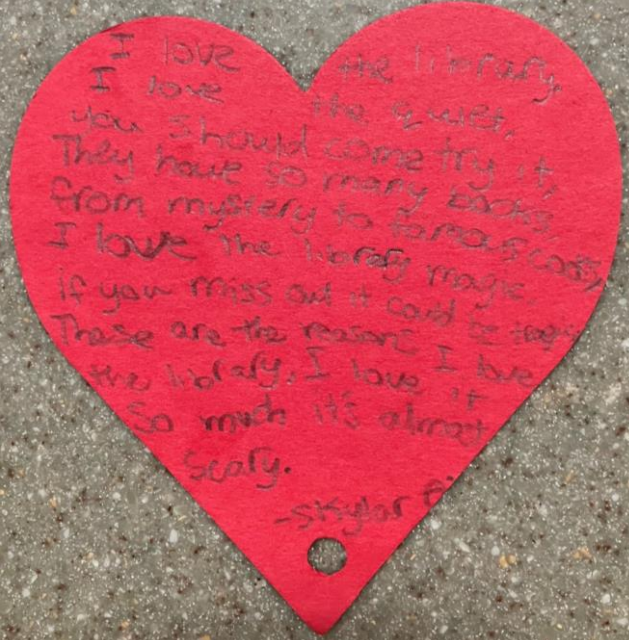 I love the library,
I love the quiet,
you should come try it,
They have so many books
from mystery to famous cooks,
I love the library magic.
if you miss out it could be tragic
These are the reasons I love
the library, I love it
So much it's almost
scary.
-Skylar